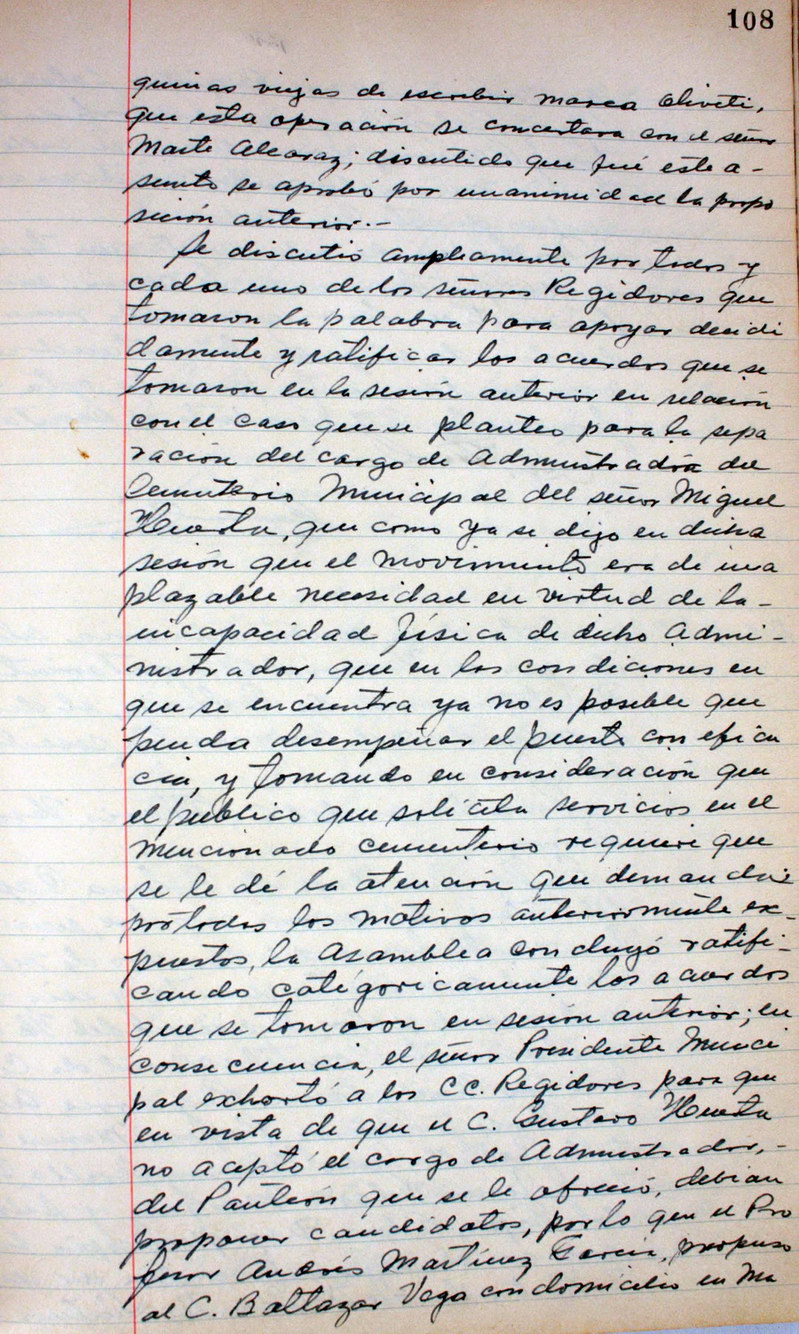 108
quinas viejas de escribir marca Oliveti,
que esta operación se concertara con el señor
Marte Alcaraz; discutido que fué este a-
sunto se aprobó por unanimidad la propo
sición anterior.-
Se discutió ampliamente por todos y
cada uno de los señores Regidores que
tomaron la palabra para apoyar decidi
damente y ratificar los acuerdos que se
tomaron en la sesión anterior en relación
con el caso que se planteo para la sepa
ración del cargo de Administrador del
Cementerio Municipal del señor Miguel
Huerta, que como ya se dijo en dicha
sesión que el movimiento era de ina
plazable necesidad en virtud de la-
incapacidad física de dicho Admi-
nistrador, que en las condiciones en
que se encuentra ya no es posible que
pueda desempeñar el puesto con efica
cia, y tomando en consideración que
el publico que solicita servicios en el
mencionado cementerio requiere que
se le dé la atención que demanda;
por todos los motivos anteriormente ex-
puestos, la Asamblea concluyó ratifi-
cando categóricamente los acuerdos
que se tomaron en sesión anterior; en
consecuencia, el señor Presidente Munici
pal exhortó a los CC. Regidores para que
en vista de que el C. Gustavo Huerta
no aceptó el cargo de Administrador,-
del Panteón que se le ofreció, debian
proponer candidatos, por lo que el Pro
fesor Andrés Martínez García, propuso
al C. Baltazar Vega con domicilio en Ma